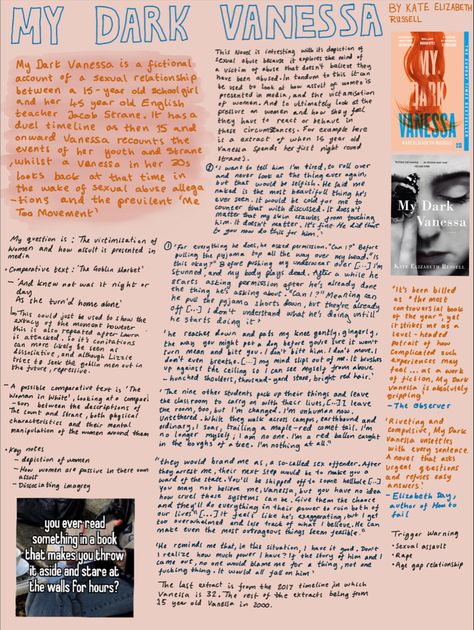 MY DARK VANESSA
BY KATE ELIZABETH
RUSSELL
My Dark Vanessa is a fictional
account of a sexual relationship
between a 15-year old schoolgirl
and her 45 year old English
teacher Jacob Strane. It has a
duel timeline as then 15 and
onward Vanessa recounts the
events of her youth and Strane
whilst a Vanessa in her 30s
looks back at that time in
the wake of sexual abuse allega
-tions and the previlent 'Me
Too Movement'
My question is: The victimisation of
women and how assult is presented in
media
• Comparative text: 'The Goblin Market'
- 'And knew not was it night or
day
As she turn'd home alone'
↳ This could just be used to show the
of the moment however
this is also repeated after Laura
is attacked. so it's conitations
can more likely be seen as
dissociative, and although Lizzie
tries to seek the goblin men out in
the future, repression.
• A possible comparative text is 'The
Woman in White', looking at a compari
-son between the descriptions of
The Count and Strane, both physical
characteristics and their mental
manipulation of the women around them
• Key notes
- depiction of women
- How women are passive in there own
assult
- Dissociating imagrey
you ever read
something in a book
that makes you throw
it aside and stare at
the walls for hours?
This Novel is interesting with its depiction of
sexual abuse because it explores the mind
of a victim of abuse that doesn't believe they
have been abused. In tandum to this it can
be used to look at how assult of women is
presented in media, and the victamisation
of women. And to ultimately look at the
pressure on women and how they feel
they have to react or behave in
these circumstances. For example here
is a extract of when 15 year old
Vanessa spends her first night round
Strane's.
② 'I want to tell him I'm tired, to roll over
and never look at the thing ever again,
but that would be selfish. He said me
naked is the most beautiful thing he's
ever seen. It would be cold for me to
counter that with disgust. It doesn't
matter that my skin crawls from touching
him. It doesn't matter. It's fine. He did that
to you now do this for him.'
'He reached down and pats my knee gently, gingerly,
the way you might pet a dog before you're sure it won't
turn mean and bite you. I don't bite him. I don't move. I
don't even breathe. [...] my mind slips out of me. It brushes
up against the ceiling so I can see myself from above
- hunched shoulders, thousand-yard stare, bright red hair.'
'The nine other students pack up their things and leave
the classroom to carry on with their lives, [...] I leave
the room, too, but I'm changed. I'm unhuman now.
Untethered. While they walk across campus, earthbound and
ordinary, I soar, trailing a maple-red comet tail. I'm
no longer myself; I am no one. I'm a red balloon caught
in the boughs of a tree. I'm nothing at all.'
'they would brand me as, a so-called sex offender. After
they arrest me, their next step would be to make you a
ward of the state. You'll be shipped off to some hellhole [...]
you may not believe me, Vanessa, but you have no idea
how cruel those systems can be. Give them the chance
and they'll do everything in their power to ruin both of
our lives" [...] It feels like he's exaggerating, but I get
too overwhelmed and lose track of what I believe. He can
make even the most outrageous things seem feasible.'
'He reminds me that, in this situation, I have it good. Don't
I realize how much power I have? If the story of him and I
came out, no one would blame me for a thing, not one
fucking thing. It would all fall on him'
The last extract is from the 2017 timeline, in which
Vanessa is 32. The rest of the extracts being from
15 year old Vanessa in 2000.
MY
DARK
VANESSA
KATE ELIZABETH RUSSELL
My Dark
Vanessa
KATE ELIZABETH
'It's been billed
as "the most
controversial book
of the year", yet
it strikes me as a
level-headed
potrait of how
complicated such
experiences may
feel ... as a work
of fiction, My Dark
Vanessa is absolutely
gripping'
- The Observer
'Riveting and
compulsive, My Dark
Vanessa unsettles
with every sentence.
A novel that asks
urgent questions
and refuses easy
answers'
- Elizabeth Day,
author of How to
fail
Trigger Warning
• Sexual assault
• Rape
• Age gap relationship